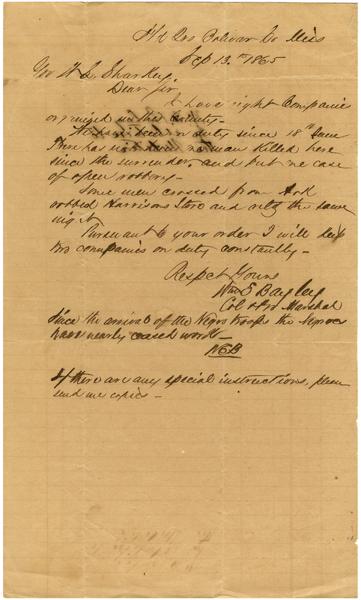 Hd Qrs Bolivar Co Miss
Sep 13th 1865
Gov W L Sharkey.
Dear Sir.
I have eight Companies
organized in this County—
on duty since 18th June
There has not been no man killed here
since the surrender, and but one case
of open robbery.
Some men crossed from Ark
robbed Harrisons Store and left the same
night
Pursuant to your order I will keep
two companies on duty constantly—
Respct Yours
Wm E Bayley
Col & Pro Marshal
Since the arrival of the Negro troops the Negroes
have nearly ceased work—
WEB
If there are any special instructions, please
send me copies—